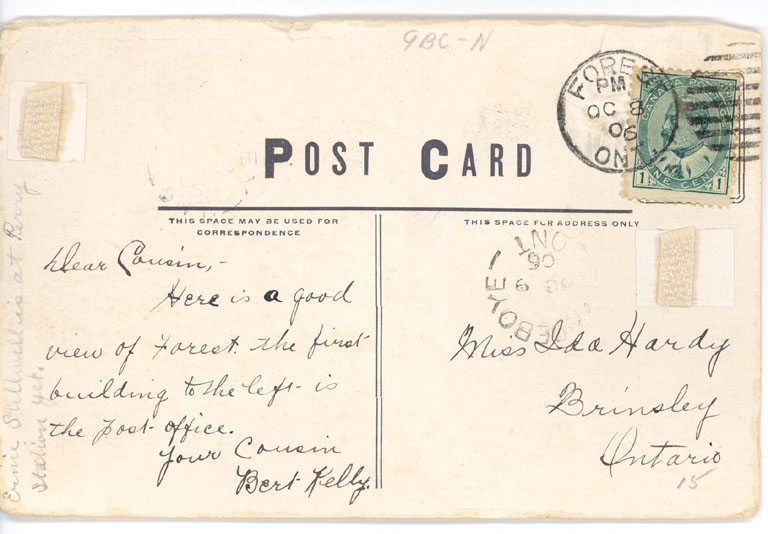 9BC-N
FOREST
PM
OC 8
06
ONT
CANADA POSTAGE
1 ONE CENT 1
POST CARD
THIS SPACE MAY BE USED FOR
CORRESPONDENCE
THIS SPACE FOR ADDRESS ONLY
Dear Cousin,-
Here is a good
view of Forest. the first
building to the left is
the post-office.
Your Cousin
Bert Kelly.
Ernie Stillwell is at Perry
Station yet.
ONT
06
9
Miss Ida Hardy
Brinsley
Ontario
15